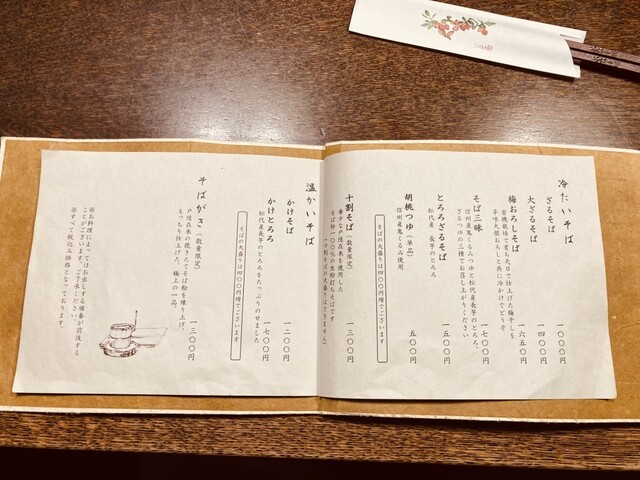 冷たいそば
ざるそば 一〇〇〇円
大ざるそば 一四〇〇円
梅おろしそば 一六五〇円
有機栽培で育ち天日で仕上げた梅干しを
辛味大根おろしと共に冷かけでどうぞ
そば三昧 一七〇〇円
信州産鬼くるみつゆと松代産長芋のとろろ、
ざるつゆの三種でお召し上がりください
とろろざるそば 一五〇〇円
松代産 長芋のとろろ
胡桃つゆ(単品) 五〇〇円
信州産鬼くるみ使用
そばの大盛りは四〇〇円増でございます
十割そば(数量限定) 一三〇〇円
希少な戸隠在来を使用した
そば粉一〇〇%の生粉打ちそばです
温かいそば
かけそば 一二〇〇円
かけとろろ 一七〇〇円
松代産長芋のとろろをたっぷりのせました
そばの大盛りは四〇〇円増でございます
そばがき(数量限定) 一三〇〇円
戸隠在来の挽きたてそば粉を練り上げ、
もっちり仕上げた、極上の一品。
※お料理によってはお出しする順番が前後する
ことがございます。ご了承ください。
※すべて税込み価格となっております。